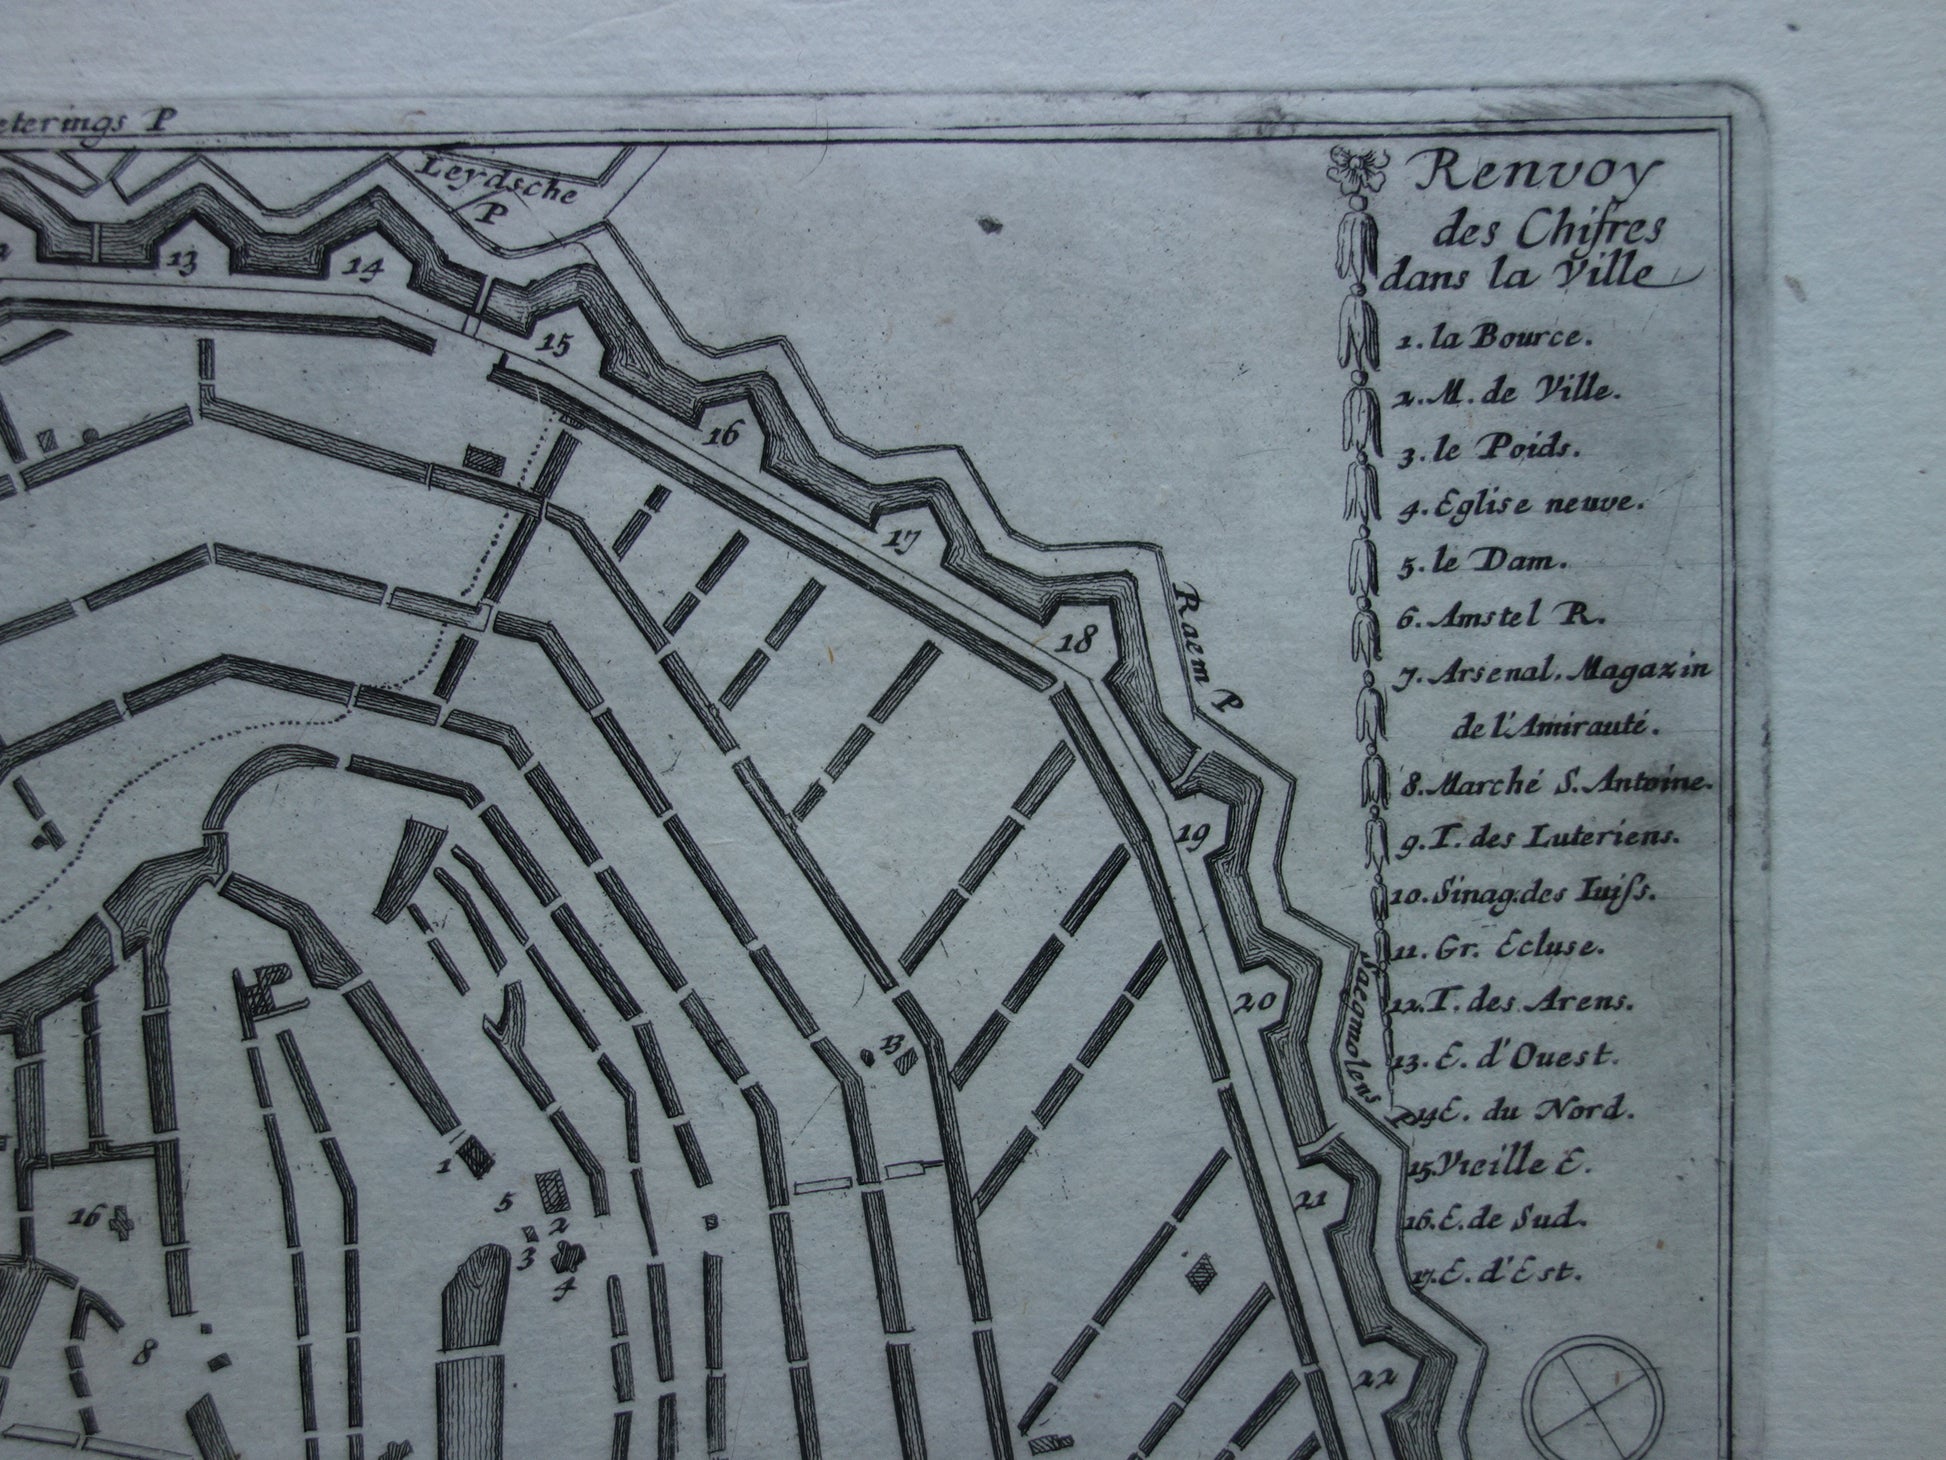 eterings P
Leydsche
P
13
14
15
16
17
18
Raem P
19
20
Jacomolens
21
22
13
1
5
2
3
4
16
8
Renvoy
des Chifres
dans la Ville
1. la Bource.
2. M. de Ville.
3. le Poids.
4. Eglise neuve.
5. le Dam.
6. Amstel R.
7. Arsenal. Magazin
de l'Amirauté.
8. Marché S. Antoine.
9. T. des Luteriens.
10. Sinag. des Iuifs.
11. Gr. Ecluse.
12. T. des Arens.
13. E. d'Ouest.
14 E. du Nord.
15. Vieille E.
16. E. de Sud.
17. E. d'Est.